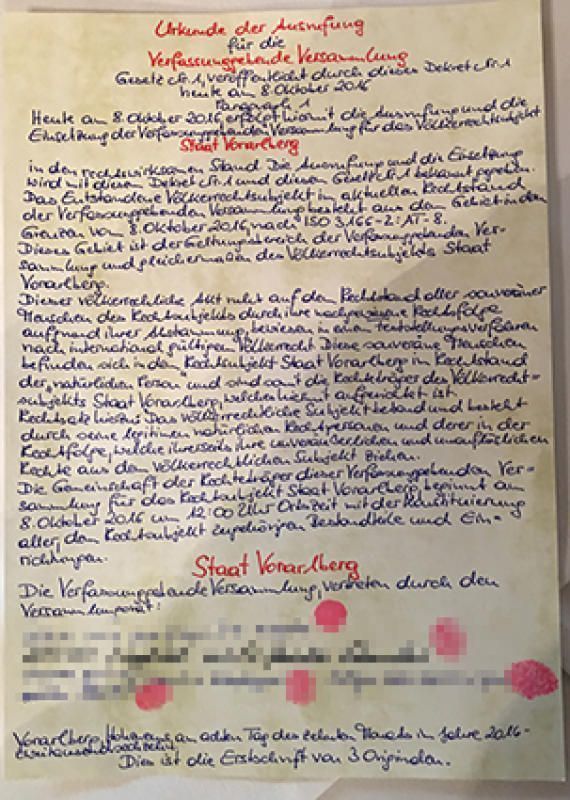 Urkunde der Ausrufung
für die
Verfassunggebende Versammlung
Gesetz Nr. 1, veröffentlicht durch dieses Dekret Nr. 1
heute am 8. Oktober 2016
Paragraph 1
Heute am 8. Oktober 2016, erfolgt hiermit die Ausrufung und die
Einsetzung der Verfassunggebenden Versammlung für das Völkerrechtsubjekt
Staat Vorarlberg
in den rechtswirksamen Stand. Die Ausrufung und die Einsetzung
wird mit diesem Dekret Nr. 1 und diesem Gesetz Nr. 1 bekannt gegeben.
Das Entstandene Völkerrechtsubjekt im aktuellen Rechtstand
der Verfassunggebenden Versammlung besteht aus dem Gebiet in den
Grenzen vom 8. Oktober 2016, nach ISO 3166-2:AT-8.
Dieses Gebiet ist der Geltungsbereich der Verfassunggebenden Ver-
sammlung und gleichermaßen des Völkerrechtsubjekts Staat
Vorarlberg.
Dieser völkerrechtliche Akt ruht auf dem Rechtstand aller souveräner
Menschen des Rechtsubjekts durch ihre nachgewiesene Rechtsfolge
aufgrund ihrer Abstammung, bewiesen in einem Feststellungsverfahren
nach international gültigem Völkerrecht. Diese souveräne Menschen
befinden sich in dem Rechtsubjekt Staat Vorarlberg im Rechtstand
der natürlichen Person und sind somit die Rechteträger des Völkerrecht-
subjekts Staat Vorarlberg, welches hiermit aufgerichtet ist.
Rechtsatz hierzu: Das völkerrechtliche Subjekt bestand und besteht
durch seine legitimen natürlichen Rechtpersonen und derer in der
Rechtfolge, welche ihrerseits ihre unveräußerlichen und unauflöslichen
Rechte aus dem Völkerrechtlichen Subjekt ziehen.
Die Gemeinschaft der Rechteträger dieser Verfassunggebenden Ver-
sammlung für das Rechtsubjekt Staat Vorarlberg, beginnt am
8. Oktober 2016 um 12:00 Uhr Ortszeit mit der Konstituierung
aller, dem Rechtsubjekt zugehörigen Bestandteile und Ein-
richtungen.
Staat Vorarlberg
Die Verfassunggebende Versammlung, vertreten durch den
Versammlungsrat:
Vorarlberg, Hohenems, am achten Tag des zehnten Monats im Jahre 2016-
zweitausendsechzehn.
Dies ist die Erstschrift von 3 Originalen.